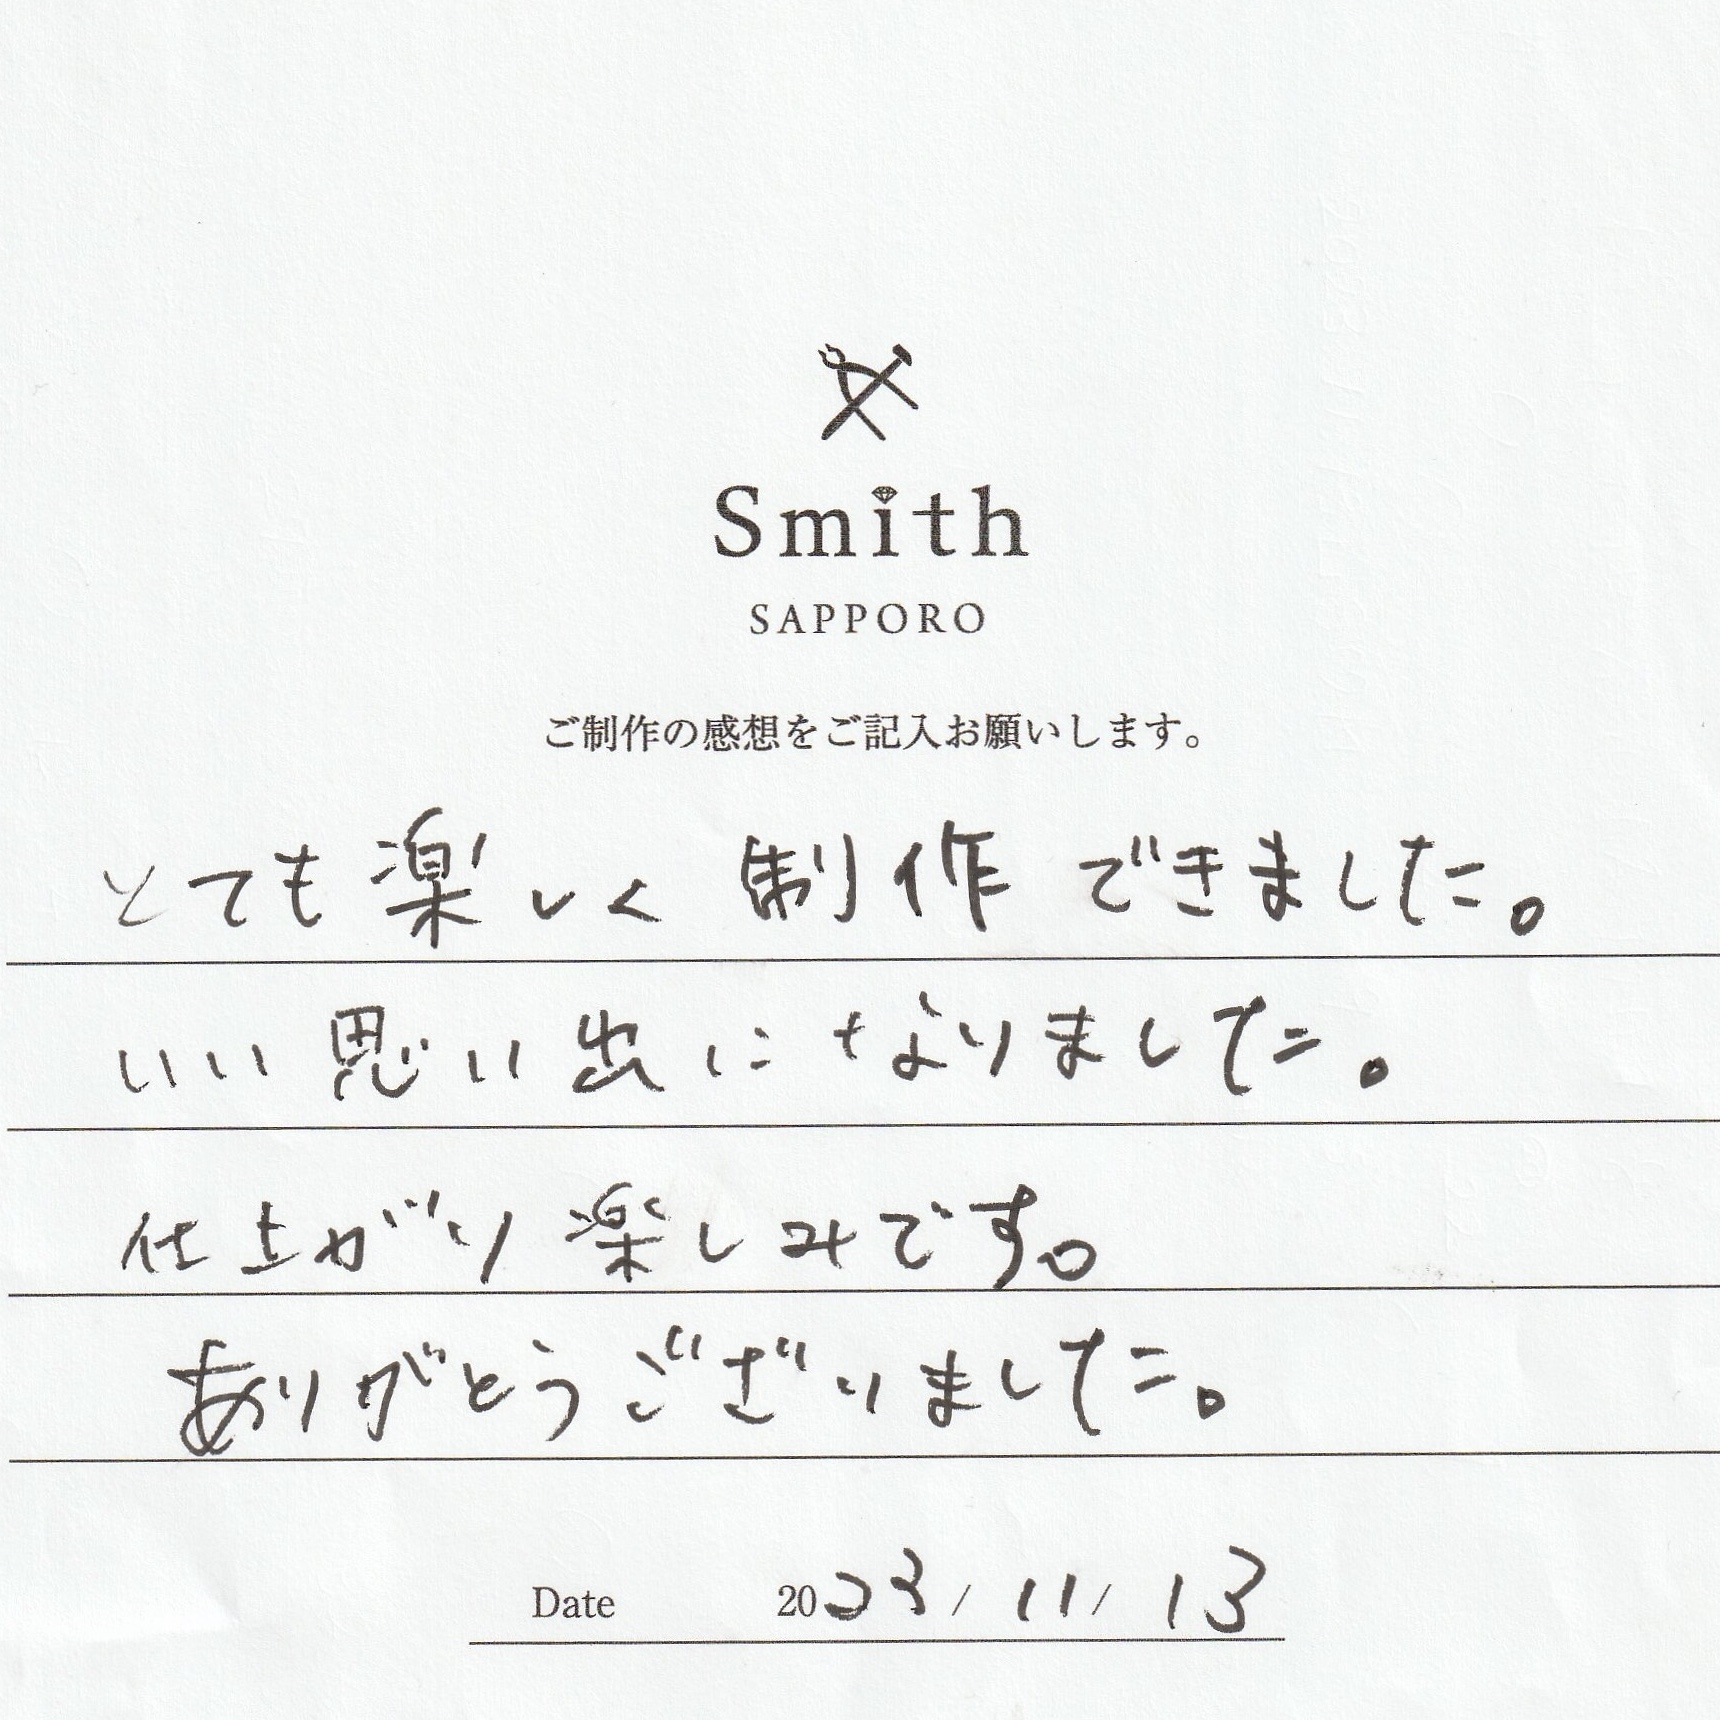 Smith
SAPPORO
ご制作の感想をご記入お願いします。
とても楽しく制作できました。
いい思い出になりました。
仕上がり楽しみです。
ありがとうございました。
Date 2023/11/13